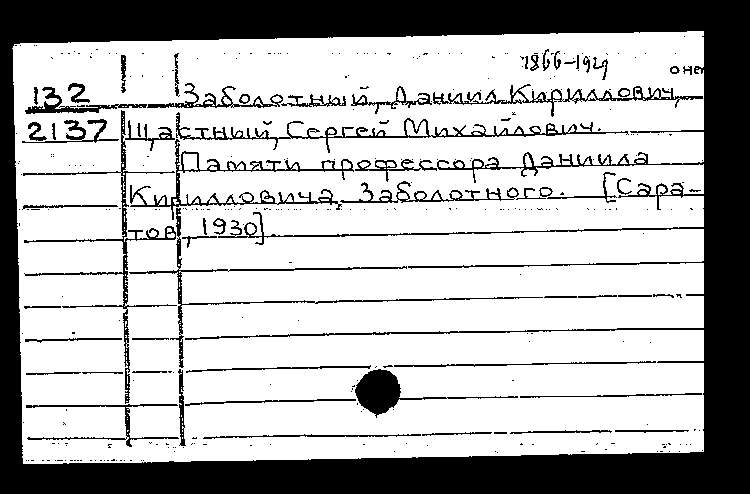 1866-1929
о нем
132
2137
Заболотный, Даниил Кириллович,
Щастный, Сергей Михайлович.
Памяти профессора Даниила
Кирилловича Заболотного. [Сара-
тов, 1930].